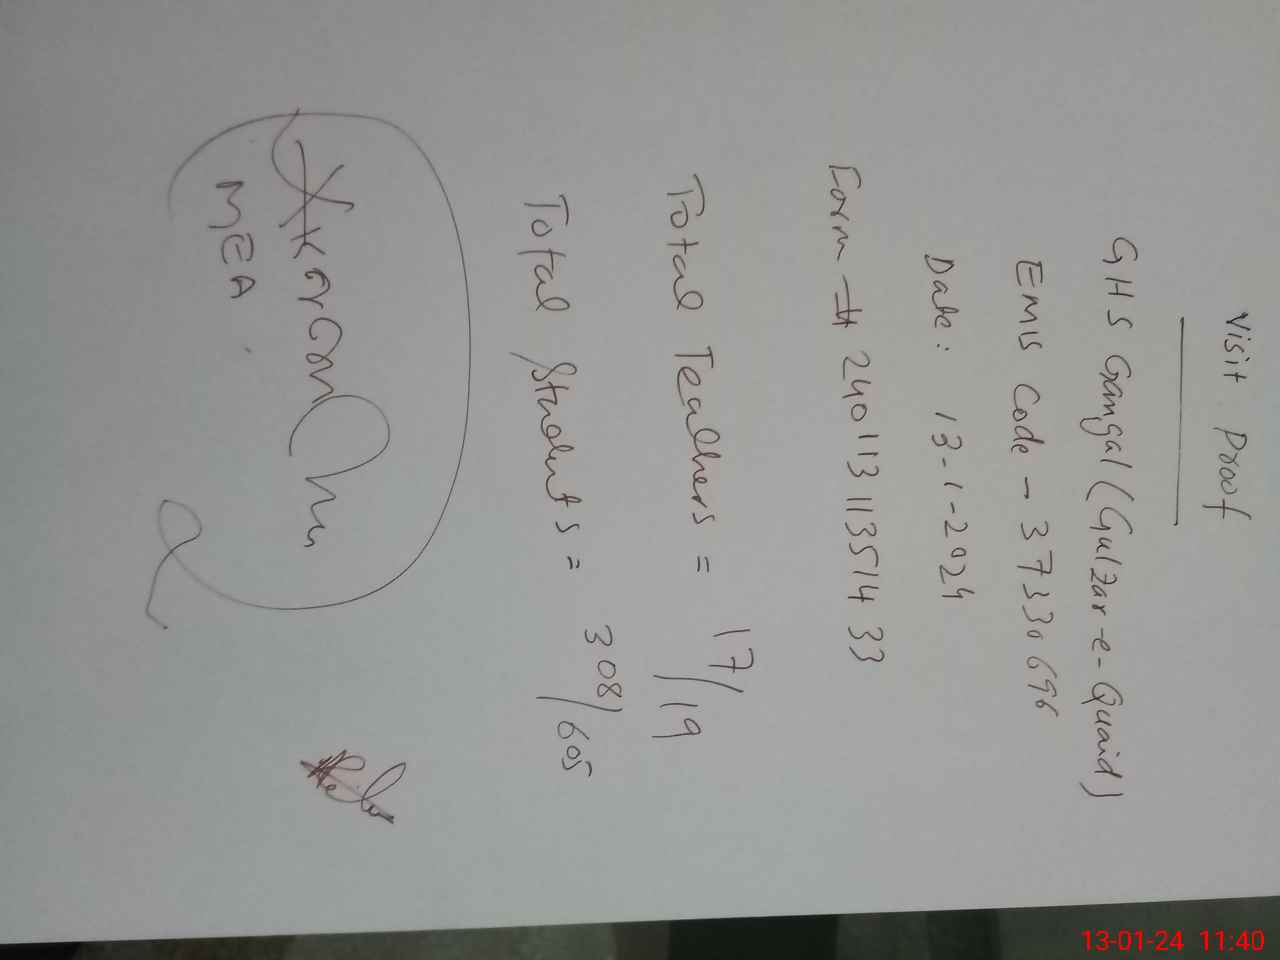 Visit Proof
GHS Gangal (Gulzar-e-Quaid)
EMIS Code - 37330696
Date: 13-1-2024
Form # 24011311351433
Total Teachers = 17/19
Total Students = 308/605
MEA
13-01-24 11:40